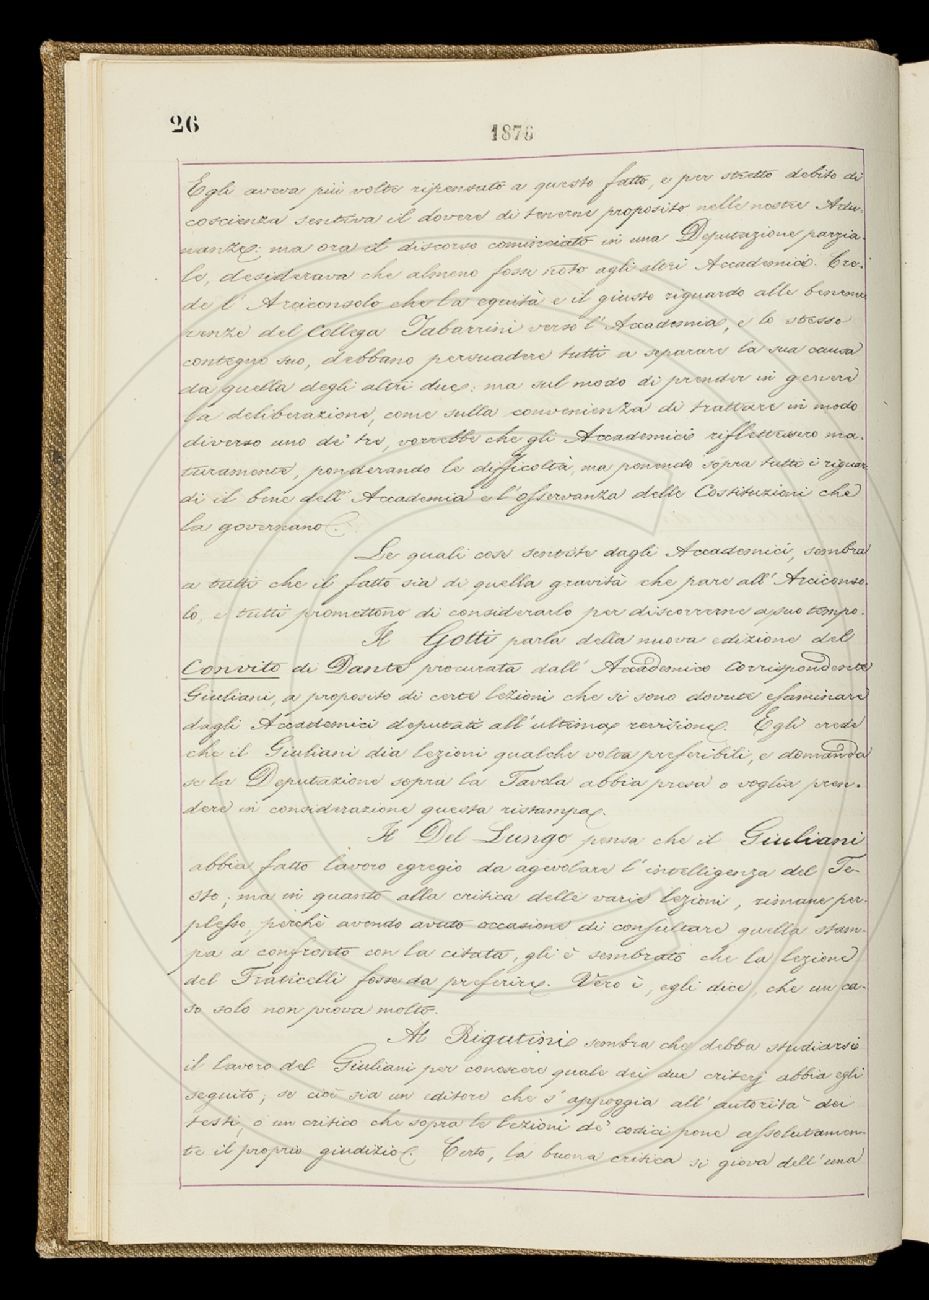 26
1876
Egli aveva più volte ripensato a questo fatto, e per stretto debito di
coscienza sentiva il dovere di tenerne proposito nelle nostre Adu-
nanze; ma ora il discorso cominciato in una Deputazione parzia-
le, desiderava che almeno fosse noto agli altri Accademici. Cre-
de l'Arciconsolo che la equità e il giusto riguardo alle beneme-
renze del Collega Tabarrini verso l'Accademia, e lo stesso
contegno suo, debbano persuadere tutti a separare la sua causa
da quella degli altri due; ma sul modo di prender in genere
la deliberazione, come sulla convenienza di trattare in modo
diverso uno de' tre, vorrebbe che gli Accademici riflettessero ma-
turamente, ponderando le difficoltà, ma ponendo sopra tutti i riguar-
di il bene dell'Accademia e l'osservanza delle Costituzioni che
la governano.
Le quali cose sentite dagli Accademici, sembra
a tutti che il fatto sia di quella gravità che pare all'Arciconso-
lo, e tutti promettono di considerarlo per discorrerne a suo tempo.
Il Gotti parla della nuova edizione del
Convito di Dante procurata dall'Accademico Corrispondente
Giuliani, a proposito di certe lezioni che si sono dovute esaminare
dagli Accademici deputati all'ultima revisione. Egli crede
che il Giuliani dia lezioni qualche volta preferibili, e domanda
se la Deputazione sopra la Tavola abbia presa o voglia pren-
dere in considerazione questa ristampa.
Il Del Lungo pensa che il Giuliani
abbia fatto lavoro egregio da agevolare l'intelligenza del Te-
sto; ma in quanto alla critica delle varie lezioni, rimane per-
plesso, perchè avendo avuto occasione di consultare quella stam-
pa a confronto con la citata, gli è sembrato che la lezione
del Fraticelli fosse da preferire. Vero è, egli dice, che un ca-
so solo non prova molto.
Al Rigutini sembra che debba studiarsi
il lavoro del Giuliani per conoscere quale dei due criterj abbia egli
seguito; se cioè sia un editore che s'appoggia all'autorità dei
testi, o un critico che sopra le lezioni de' codici pone assolutamen-
te il proprio giudizio. Certo, la buona critica si giova dell'una